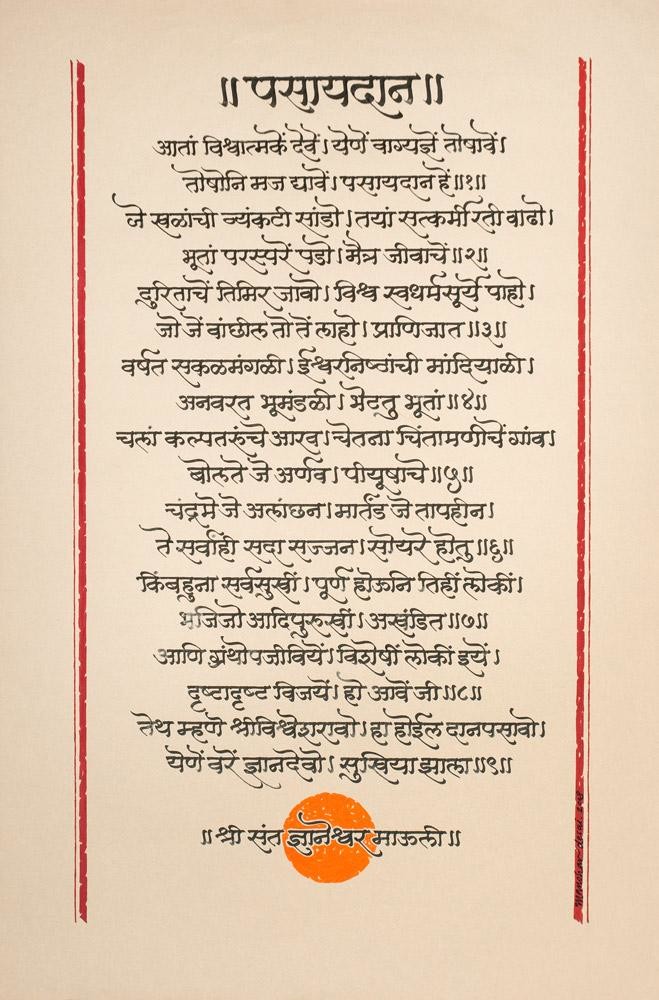 ॥ पसायदान ॥
आतां विश्वात्मकें देवें। येणें वाग्यज्ञें तोषावें।
तोषोनि मज द्यावें। पसायदान हें॥१॥
जे खळांची व्यंकटी सांडो। तयां सत्कर्मी रती वाढो।
भूतां परस्परें पडो। मैत्र जीवाचें॥२॥
दुरिताचें तिमिर जावो। विश्व स्वधर्मसूर्यें पाहो।
जो जें वांछील तो तें लाहो। प्राणिजात॥३॥
वर्षत सकळमंगळी। ईश्वरनिष्ठांची मांदियाळी।
अनवरत भूमंडळी। भेटतु भूतां॥४॥
चलां कल्पतरूंचे आरव। चेतना चिंतामणीचें गांव।
बोलते जे अर्णव। पीयूषाचे॥५॥
चंद्रमे जे अलांछन। मार्तंड जे तापहीन।
ते सर्वांही सदा सज्जन। सोयरे होतु॥६॥
किंबहुना सर्वसुखीं। पूर्ण होऊनि तिहीं लोकीं।
भजिजो आदिपुरुखीं। अखंडित॥७॥
आणि ग्रंथोपजीवियें। विशेषीं लोकीं इयें।
दृष्टादृष्ट विजयें। हो आवें जी॥८॥
तेथ म्हणे श्रीविश्वेशरावो। हा होईल दानपसावो।
येणें वरें ज्ञानदेवो। सुखिया झाला॥९॥
॥ श्री संत ज्ञानेश्वर माऊली॥
Manohar desai